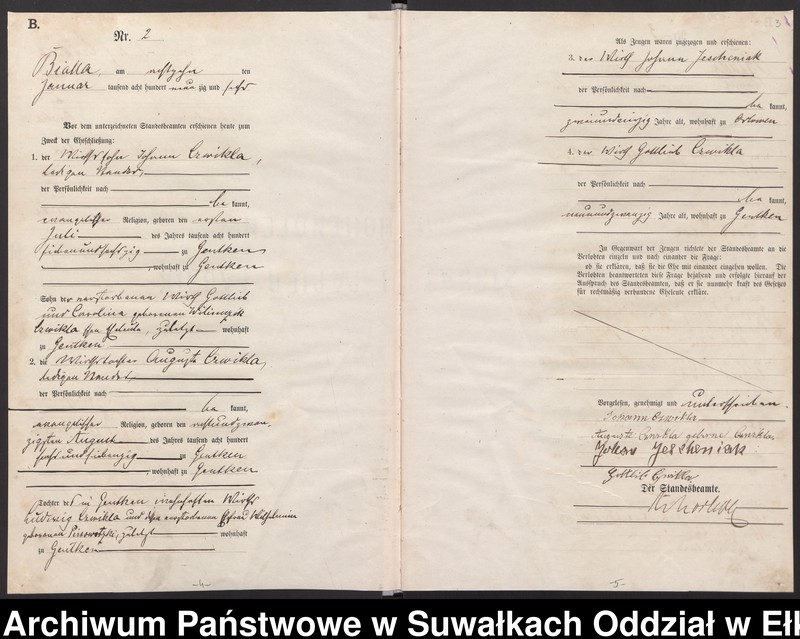 B.
Nr. 2
Bialla, am achtzehn ten
Januar tausend acht hundert neun zig und sechs
Vor dem unterzeichneten Standesbeamten erschienen heute zum
Zweck der Eheschließung:
1. der Wirthssohn Johann Czwikla,
ledigen Standes,
der Persönlichkeit nach
be kannt,
evangelischer Religion, geboren den ersten
Juli des Jahres tausend acht hundert
siebenundsechzig zu Gentken
, wohnhaft zu Gentken
Sohn der verstorbenen Wirth Gottlieb
und Carolina geborenen
Czwikla'schen Eheleute, zuletzt wohnhaft
zu Gentken
2. die Wirthstochter Auguste Czwikla,
ledigen Standes
der Persönlichkeit nach
be kannt,
evangelischer Religion, geboren den achtundzwan
zigsten August des Jahres tausend acht hundert
sechsundsiebenzig zu Gentken
, wohnhaft zu Gentken
Tochter des in Gentken wohnhaften Wirths
Ludwig Czwikla und dessen verstorbenen Ehefrau Wilhelmine
geborenen zuletzt wohnhaft
zu Gentken
-4-
3
Als Zeugen waren zugezogen und erschienen:
3. der Wirth Johann Jescheniak
der Persönlichkeit nach
be kannt,
zweiunddreißig Jahre alt, wohnhaft zu Orlowen
4. der Wirth Gottlieb Czwikla
der Persönlichkeit nach
be kannt,
neunundzwanzig Jahre alt, wohnhaft zu Gentken
In Gegenwart der Zeugen richtete der Standesbeamte an die
Verlobten einzeln und nach einander die Frage:
ob sie erklären, daß sie die Ehe mit einander eingehen wollen. Die
Verlobten beantworteten diese Frage bejahend und erfolgte hierauf der
Ausspruch des Standesbeamten, daß er sie nunmehr kraft des Gesetzes
für rechtmäßig verbundene Eheleute erkläre.
Vorgelesen, genehmigt und unterschrieben
Johann Czwikla
Auguste Czwikla geborne Czwikla
Johan Jescheniak
Gottlieb Czwikla
Der Standesbeamte.
-5-
Archiwum Państwowe w Suwałkach Oddział w Eł